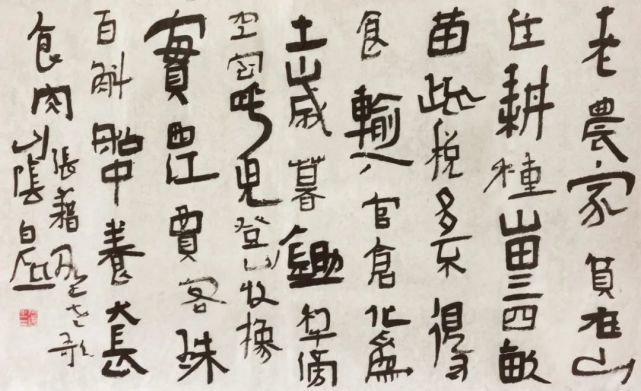 老農家貧在山
住耕種山田三四畝
苗疏税多不得
食輸入官倉化為
土歲暮鋤犁傍
空室呼兒登山收橡
實西江賈客珠
百斛船中養犬長
食肉張籍野老歌
山陰白砥